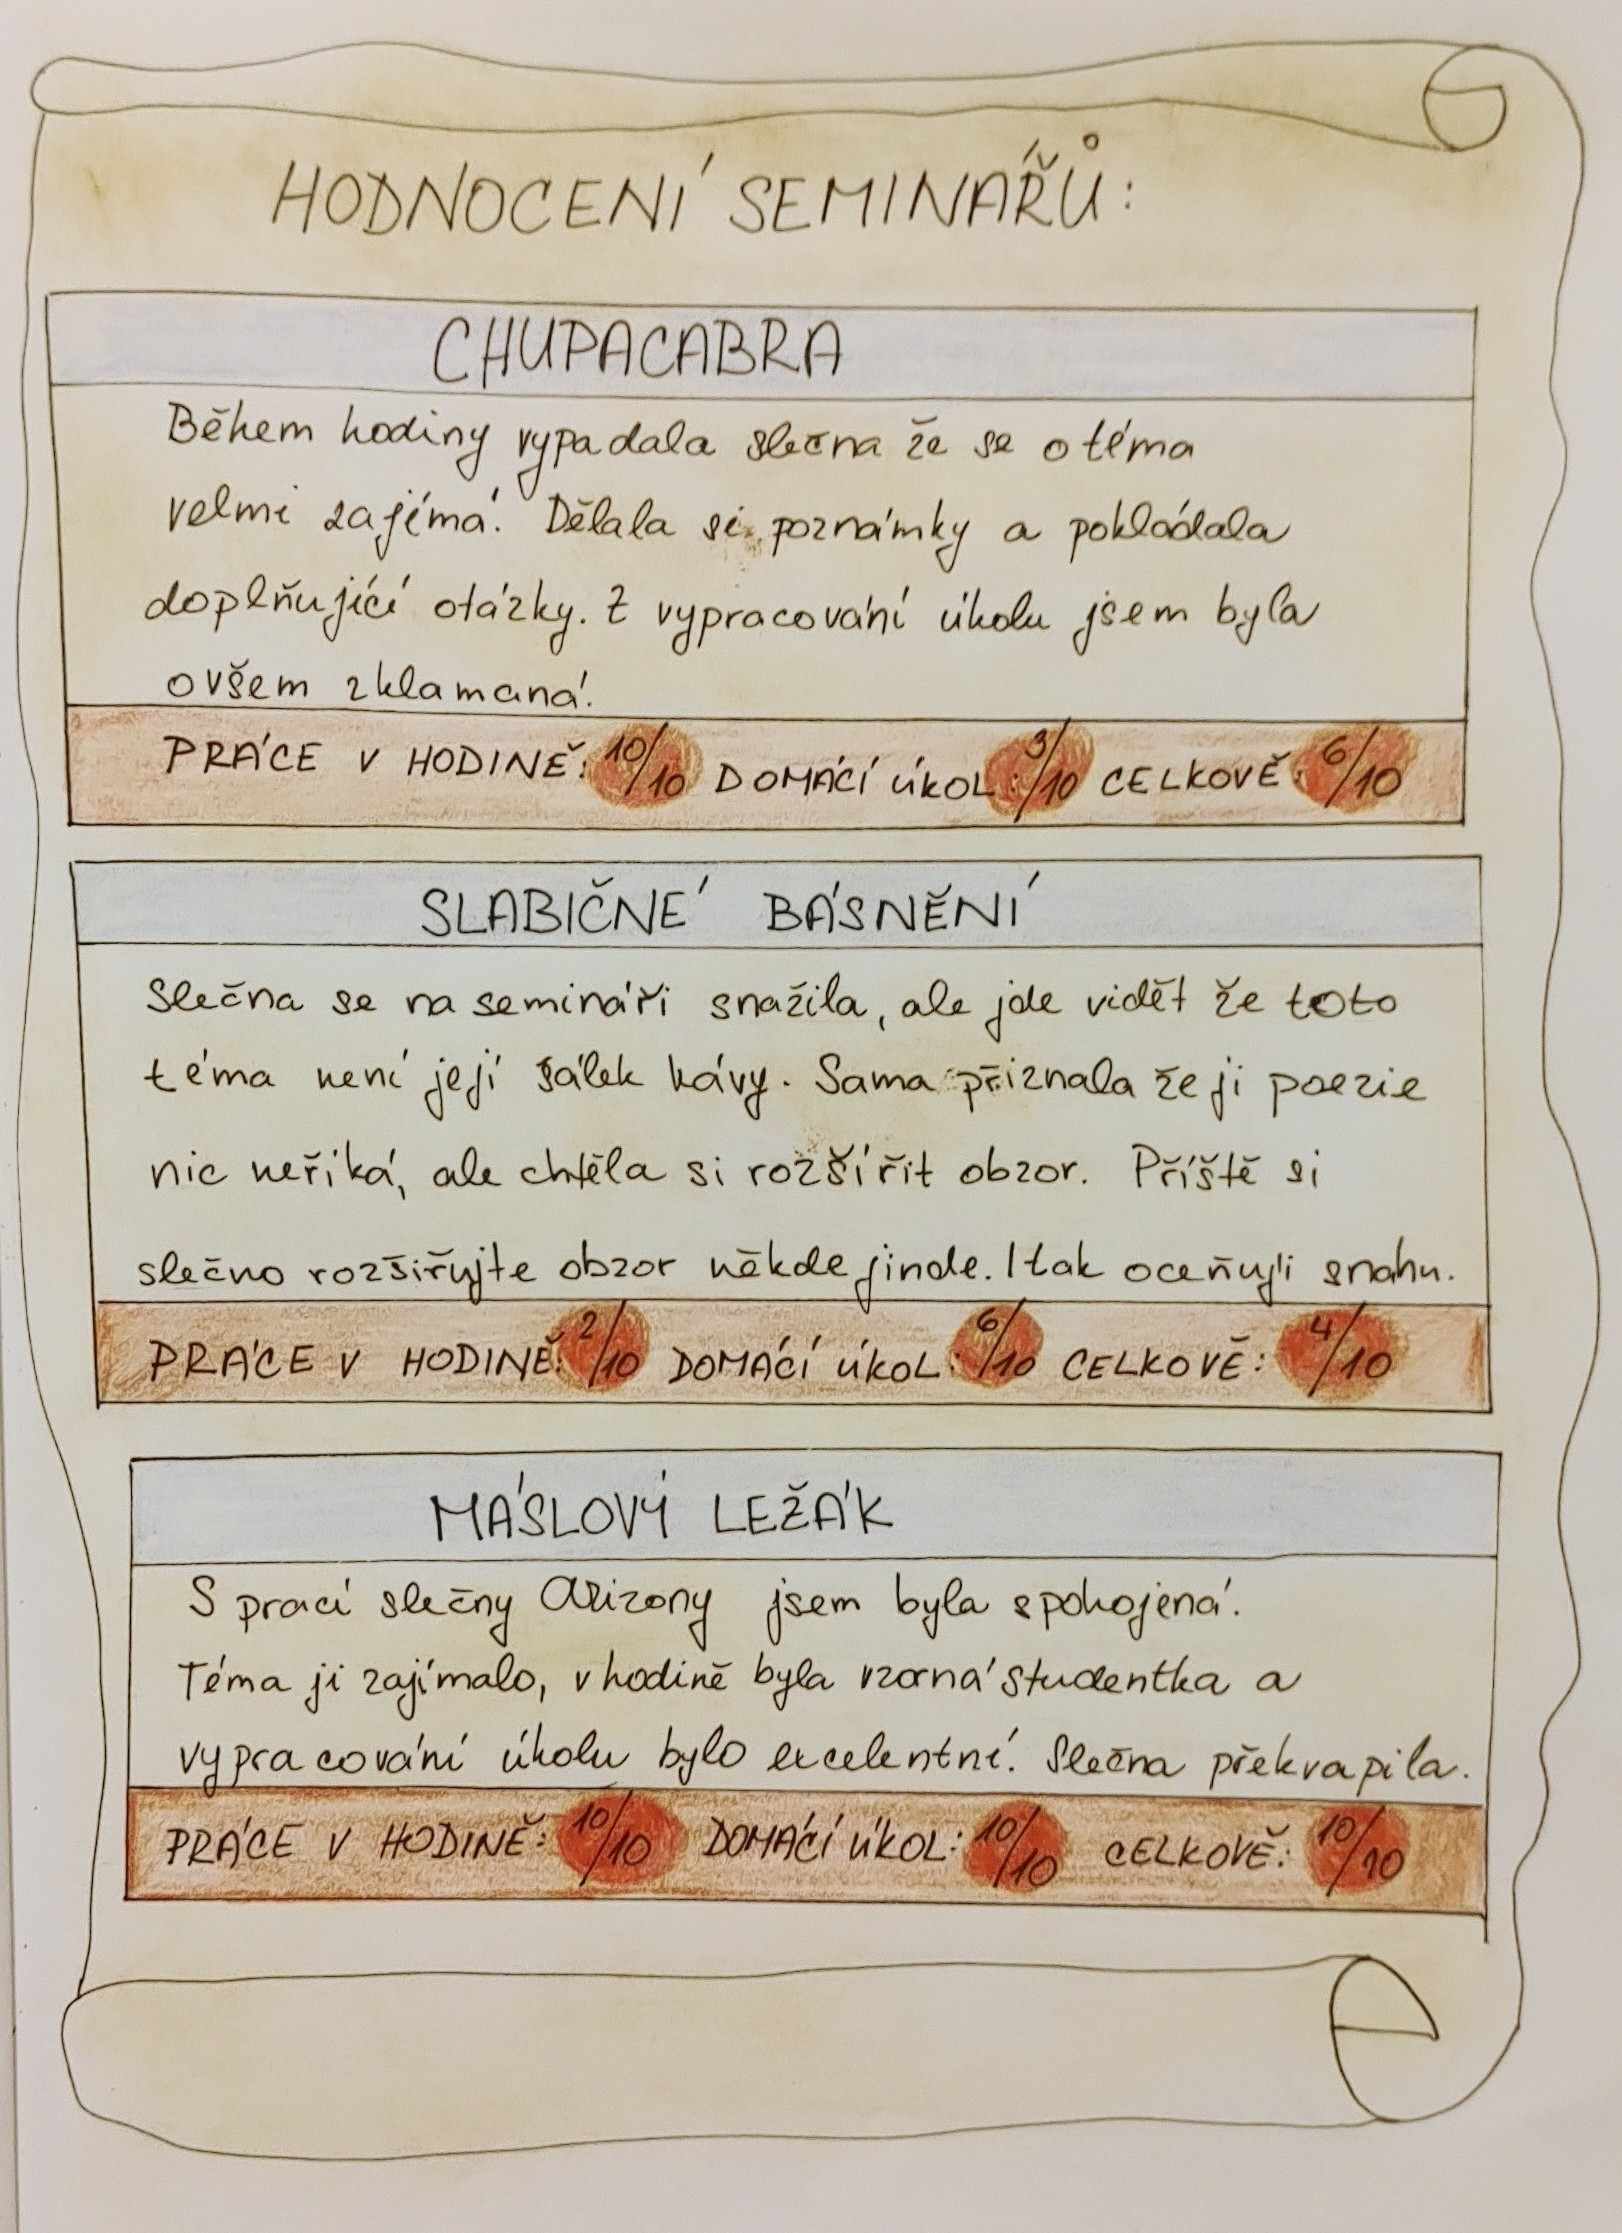 HODNOCENÍ SEMINÁŘŮ:
CHUPACABRA
Během hodiny vypadala slečna že se o téma
velmi zajímá. Dělala si poznámky a pokládala
doplňující otázky. Z vypracování úkolu jsem byla
ovšem zklamaná.
PRÁCE V HODINĚ: 10/10 DOMÁCÍ ÚKOL: 3/10 CELKOVĚ: 6/10
SLABIČNÉ BÁSNĚNÍ
Slečna se na semináři snažila, ale jde vidět že toto
téma není její šálek kávy. Sama přiznala že ji poezie
nic neříká, ale chtěla si rozšířit obzor. Příště si
slečno rozšiřujte obzor někde jinde. I tak oceňuji snahu.
PRÁCE V HODINĚ: 2/10 DOMÁCÍ ÚKOL: 6/10 CELKOVĚ: 4/10
MÁSLOVÝ LEŽÁK
S prací slečny Arizony jsem byla spokojená.
Téma ji zajímalo, v hodině byla vzorná studentka a
vypracování úkolu bylo excelentní. Slečna překvapila.
PRÁCE V HODINĚ: 10/10 DOMÁCÍ ÚKOL: 10/10 CELKOVĚ: 10/10